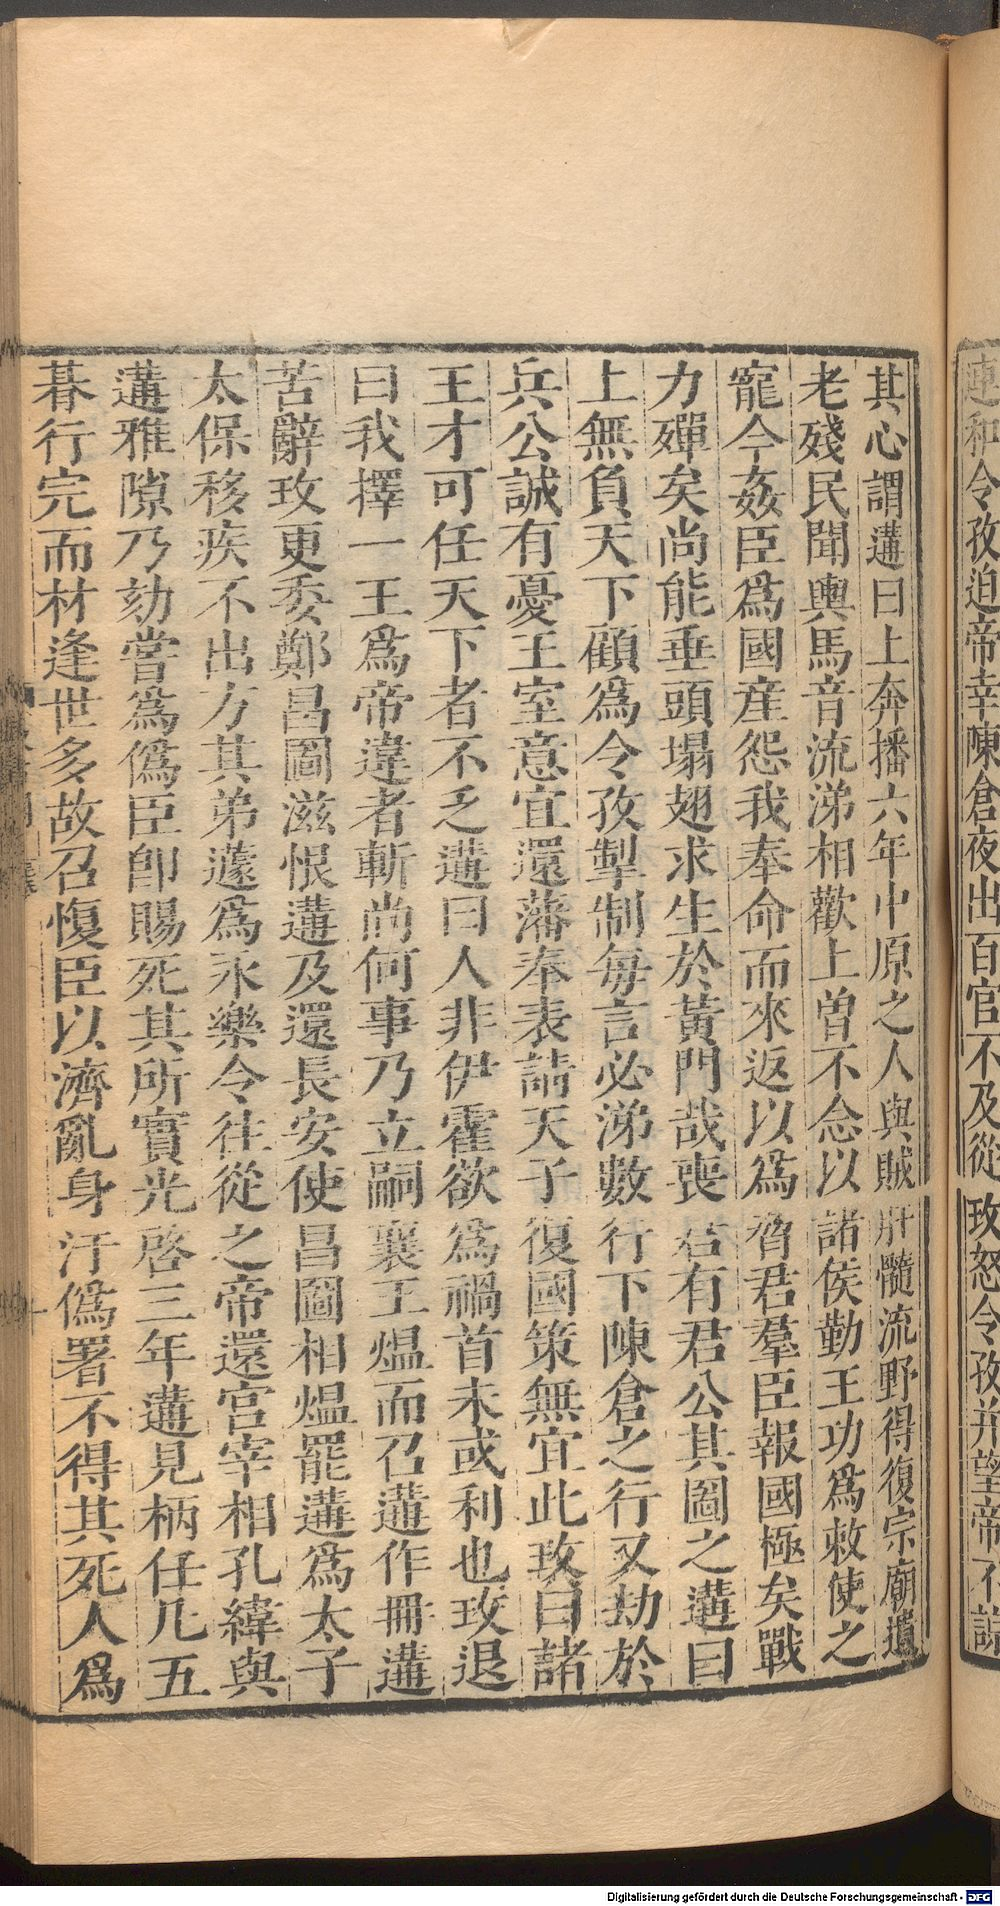 連和令孜迫帝幸陳倉夜出百官不及從玫怒令孜并望帝不諒
其心謂遘曰上奔播六年中原之人與賊肝髓流野得復宗廟遺
老殘民聞輿馬音流涕相歡上曾不念以諸侯勤王功爲敕使之
寵今姦臣爲國産怨我奉命而來返以爲脅君羣臣報國極矣戰
力殫矣尚能垂頭塌翅求生於黃門哉喪君有君公其圖之遘曰
上無負天下顧爲令孜掣制每言必涕數行下陳倉之行又劫於
兵公誠有憂王室意宜還藩奉表請天子復國策無宜此玫曰諸
王才可任天下者不乏遘曰人非伊霍欲爲禍首未或利也玫退
曰我擇一王爲帝違者斬尚何事乃立嗣襄王熅而召遘作冊遘
苦辭玫更委鄭昌圖滋恨遘及還長安使昌圖相熅罷遘爲太子
太保移疾不出方其弟蘧爲永樂令往從之帝還宮宰相孔緯與
遘雅隙乃劾嘗爲僞臣卽賜死其所實光啓三年遘見柄任凡五
朞行完而材逢世多故召愎臣以濟亂身汙僞署不得其死人爲
Digitalisierung gefördert durch die Deutsche Forschungsgemeinschaft - DFG